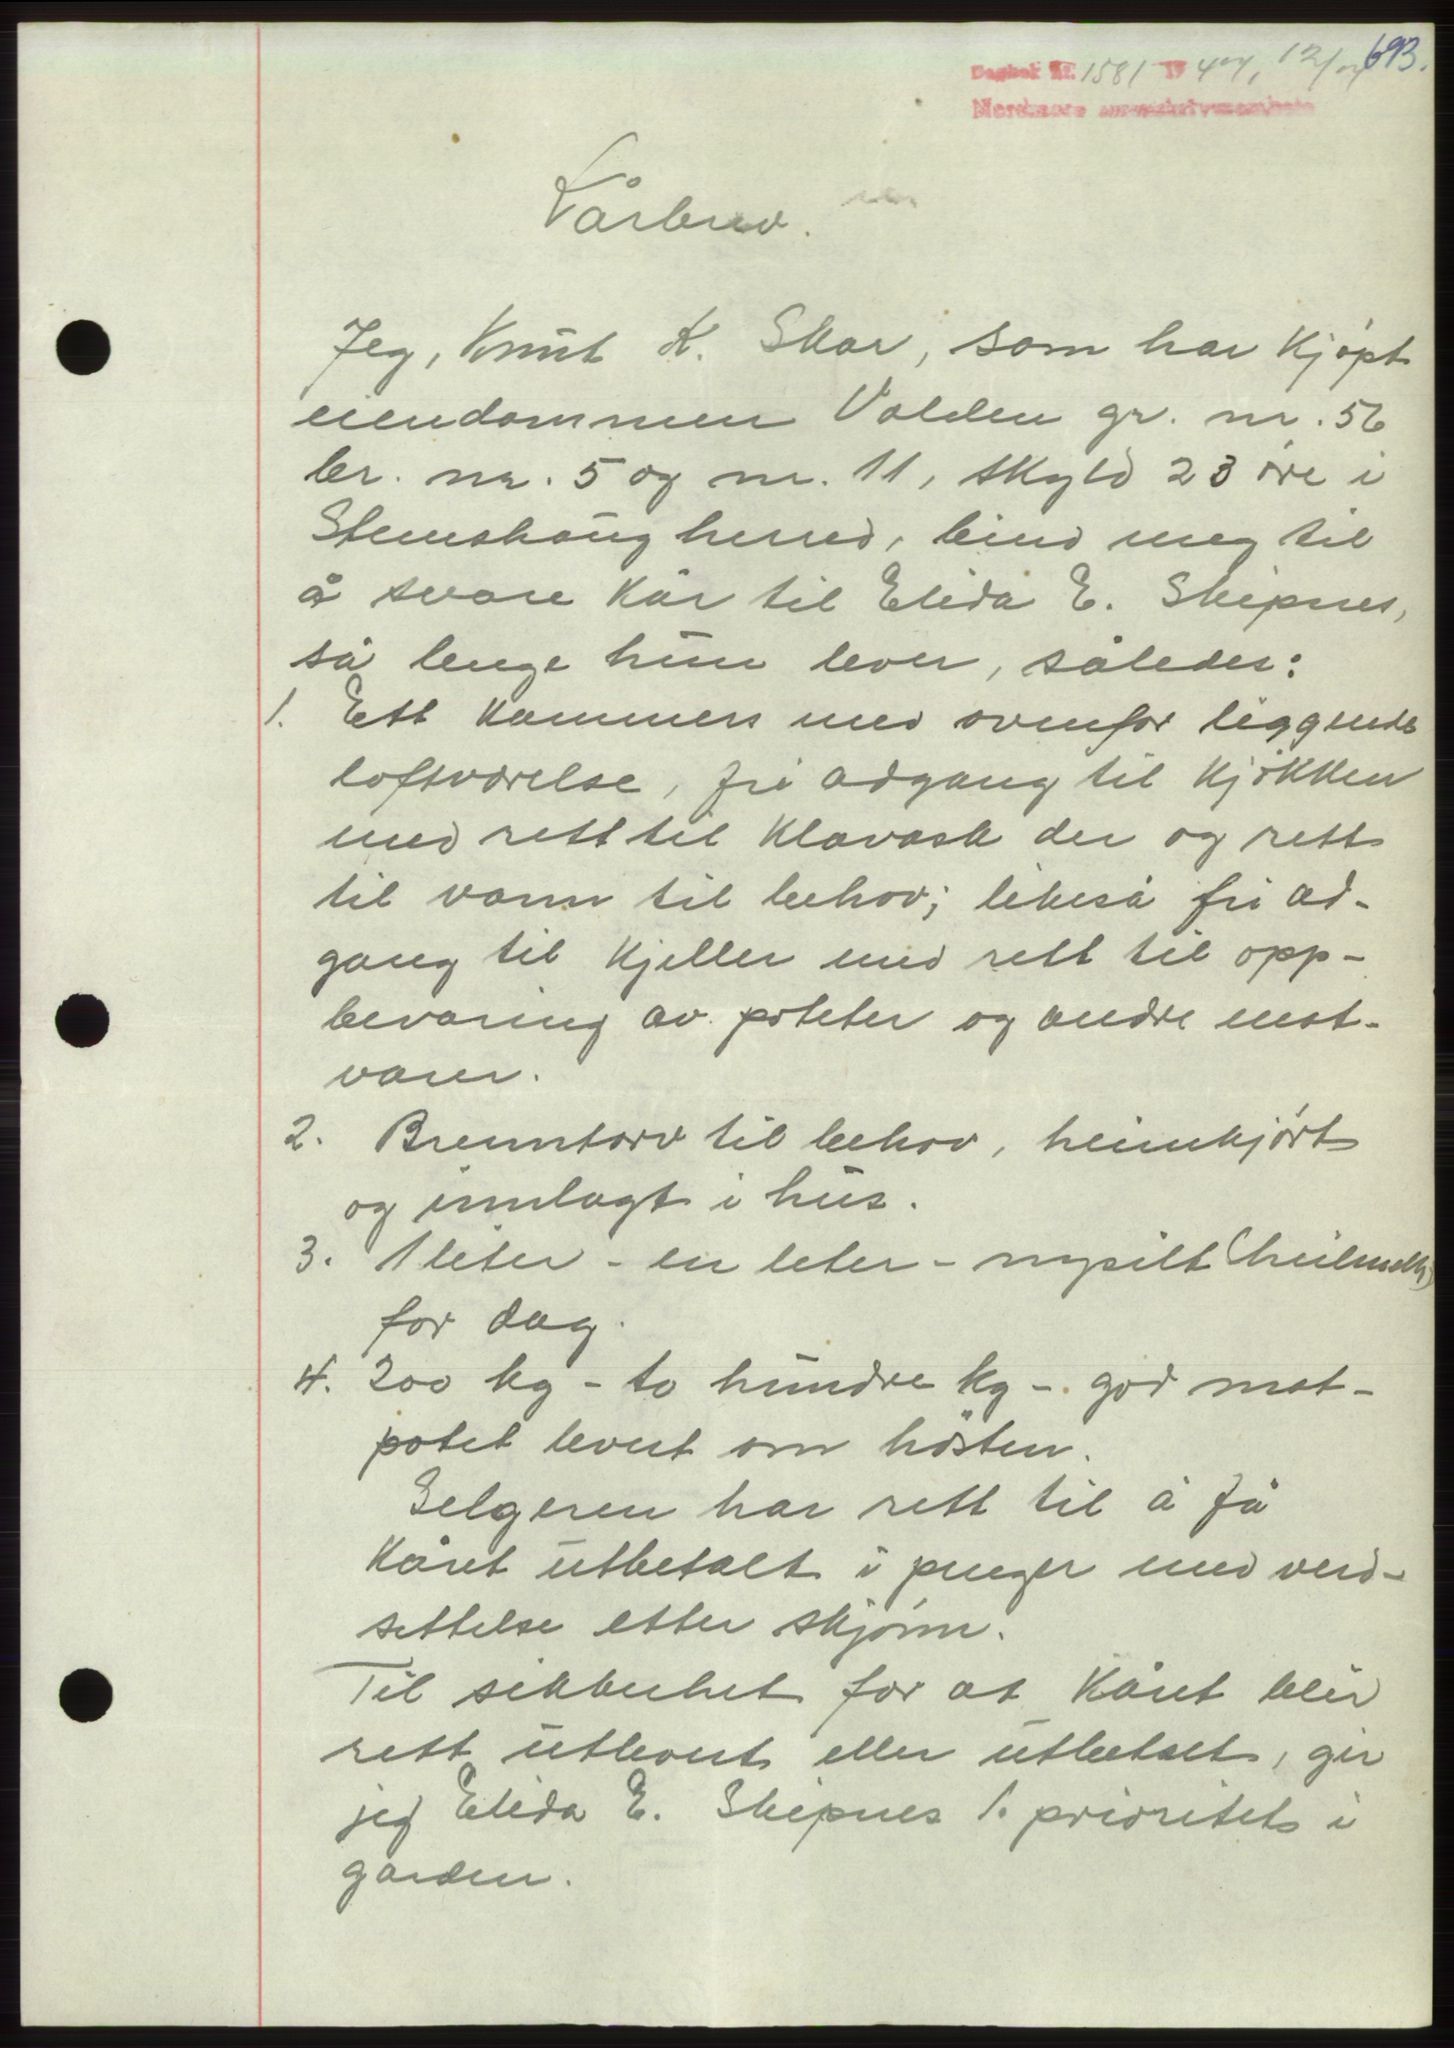 693.
Dagbok nr. 1581 19 47, 12/
Nordmøre sorenskriverembete
Kårbrev.
Jeg, Knut K. Skar, som har kjøpt
eiendommen Valden gr. nr. 56
br. nr. 5 og nr. 11, skyld 23 øre i
Stemshaug herred, bind meg til
å svare kår til Elida E. Skipnes,
så lenge hun lever, således:
1. Ett kammers med ovenfor liggende
loftsværelse, fri adgang til kjøkken
med rett til klavask der og rett
til vann til behov; likeså fri ad-
gang til kjeller med rett til opp-
bevaring av poteter og andre mat-
varer.
2. Brenntorv til behov, heimkjørt
og innlagt i hus.
3. 1 liter - en liter - nysilt (heilmelk)
for dag.
4. 200 kg - to hundre kg - god mat-
potet levert om høsten.
Selgeren har rett til å få
kåret utbetalt i penger med verd-
settelse etter skjønn.
Til sikkerhet for at kåret blir
rett utlevert eller utbetalt, gir
jeg Elida E. Skipnes 1. prioritet i
garden.